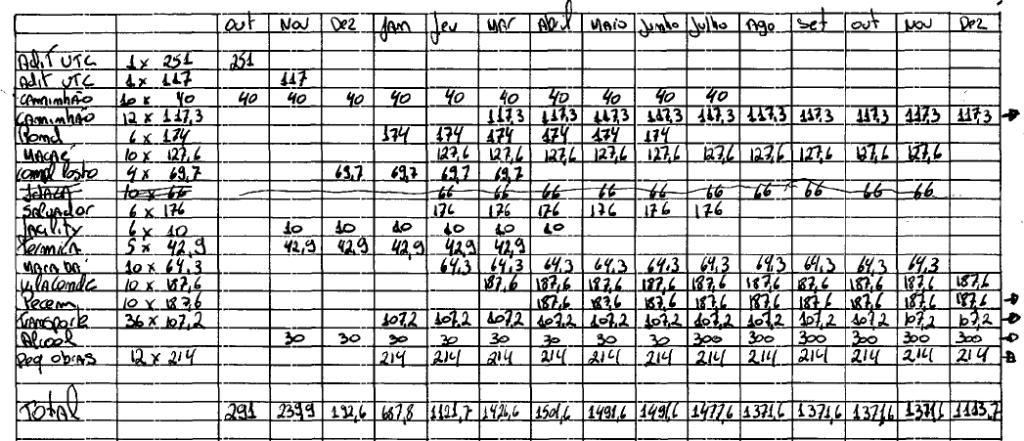 out Nov Dez Jan Fev Mar Abril Maio Junho Julho Ago Set out Nov Dez
Adit UTC 1 x 251 251
Adit UTC 1 x 117 117
Caminhão 10 x 40 40 40 40 40 40 40 40 40 40 40
Caminhão 12 x 117,3 117,3 117,3 117,3 117,3 117,3 117,3 117,3 117,3 117,3 117,3
6 x 174 174 174 174 174 174 174
Macaé 10 x 127,6 127,6 127,6 127,6 127,6 127,6 127,6 127,6 127,6 127,6 127,6
4 x 69,7 69,7 69,7 69,7 69,7
10 x 66 66 66 66 66 66 66 66 66 66 66
Salvador 6 x 176 176 176 176 176 176 176
Facility 6 x 10 10 10 10 10 10 10
Termica 5 x 42,9 42,9 42,9 42,9 42,9 42,9
10 x 64,3 64,3 64,3 64,3 64,3 64,3 64,3 64,3 64,3 64,3 64,3
10 x 187,6 187,6 187,6 187,6 187,6 187,6 187,6 187,6 187,6 187,6 187,6
Pecem 10 x 187,6 187,6 187,6 187,6 187,6 187,6 187,6 187,6 187,6 187,6
Transporte 36 x 107,2 107,2 107,2 107,2 107,2 107,2 107,2 107,2 107,2 107,2 107,2 107,2 107,2
Alcool 30 30 30 30 30 30 30 30 300 300 300 300 300 300
Peq obras 12 x 214 214 214 214 214 214 214 214 214 214 214 214 214
Total 291 239,9 192,6 687,8 1121,7 1426,6 1501,6 1491,6 1491,6 1477,6 1371,6 1371,6 1371,6 1371,6 1113,7